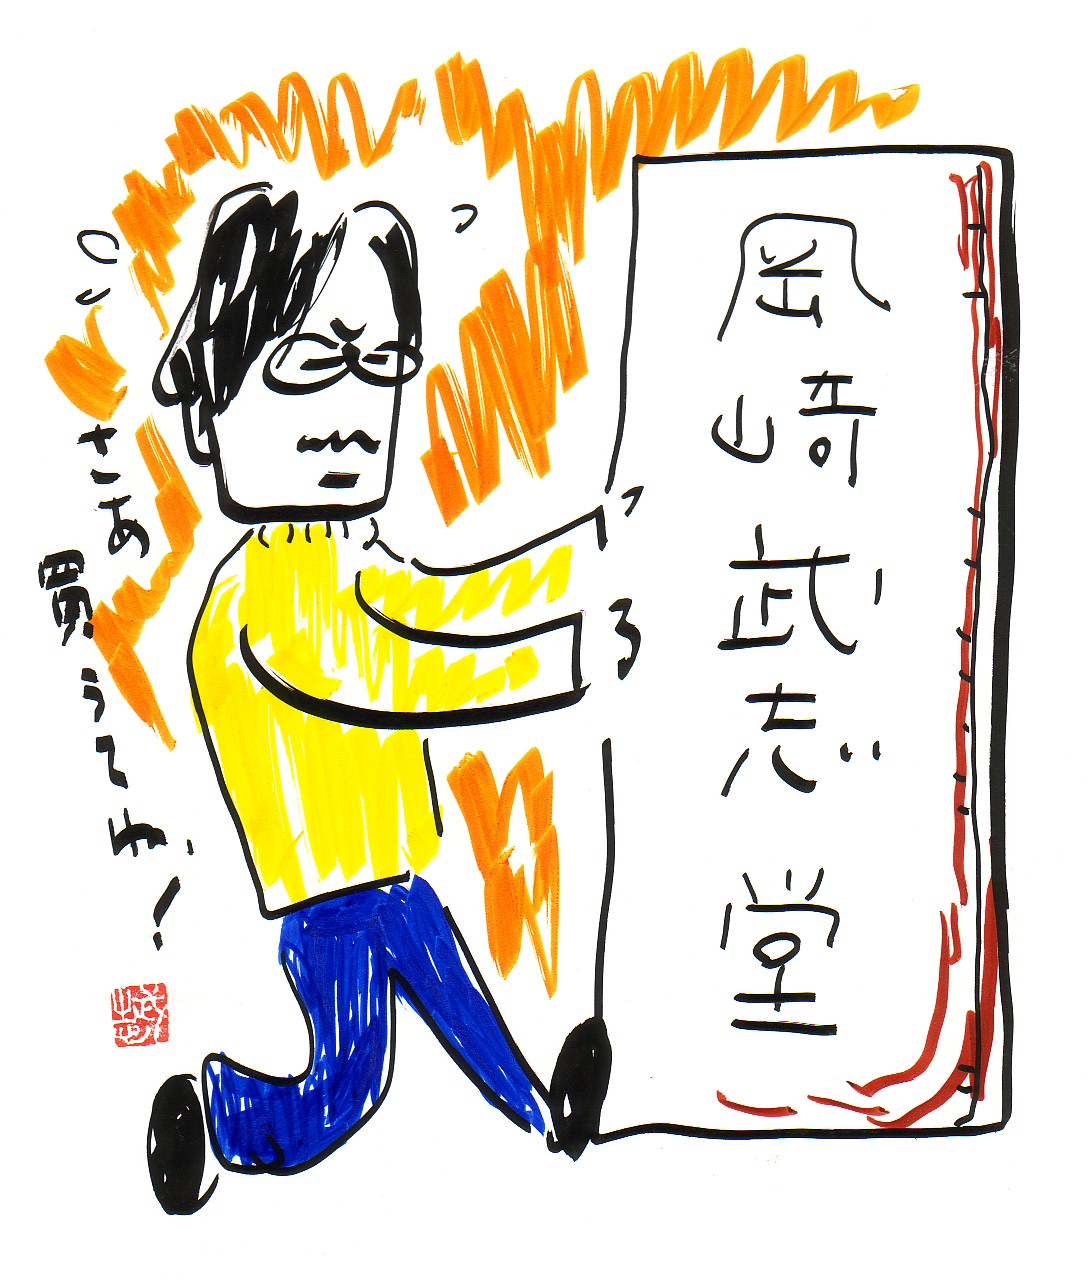 岡崎武志堂
さあ買うてや!